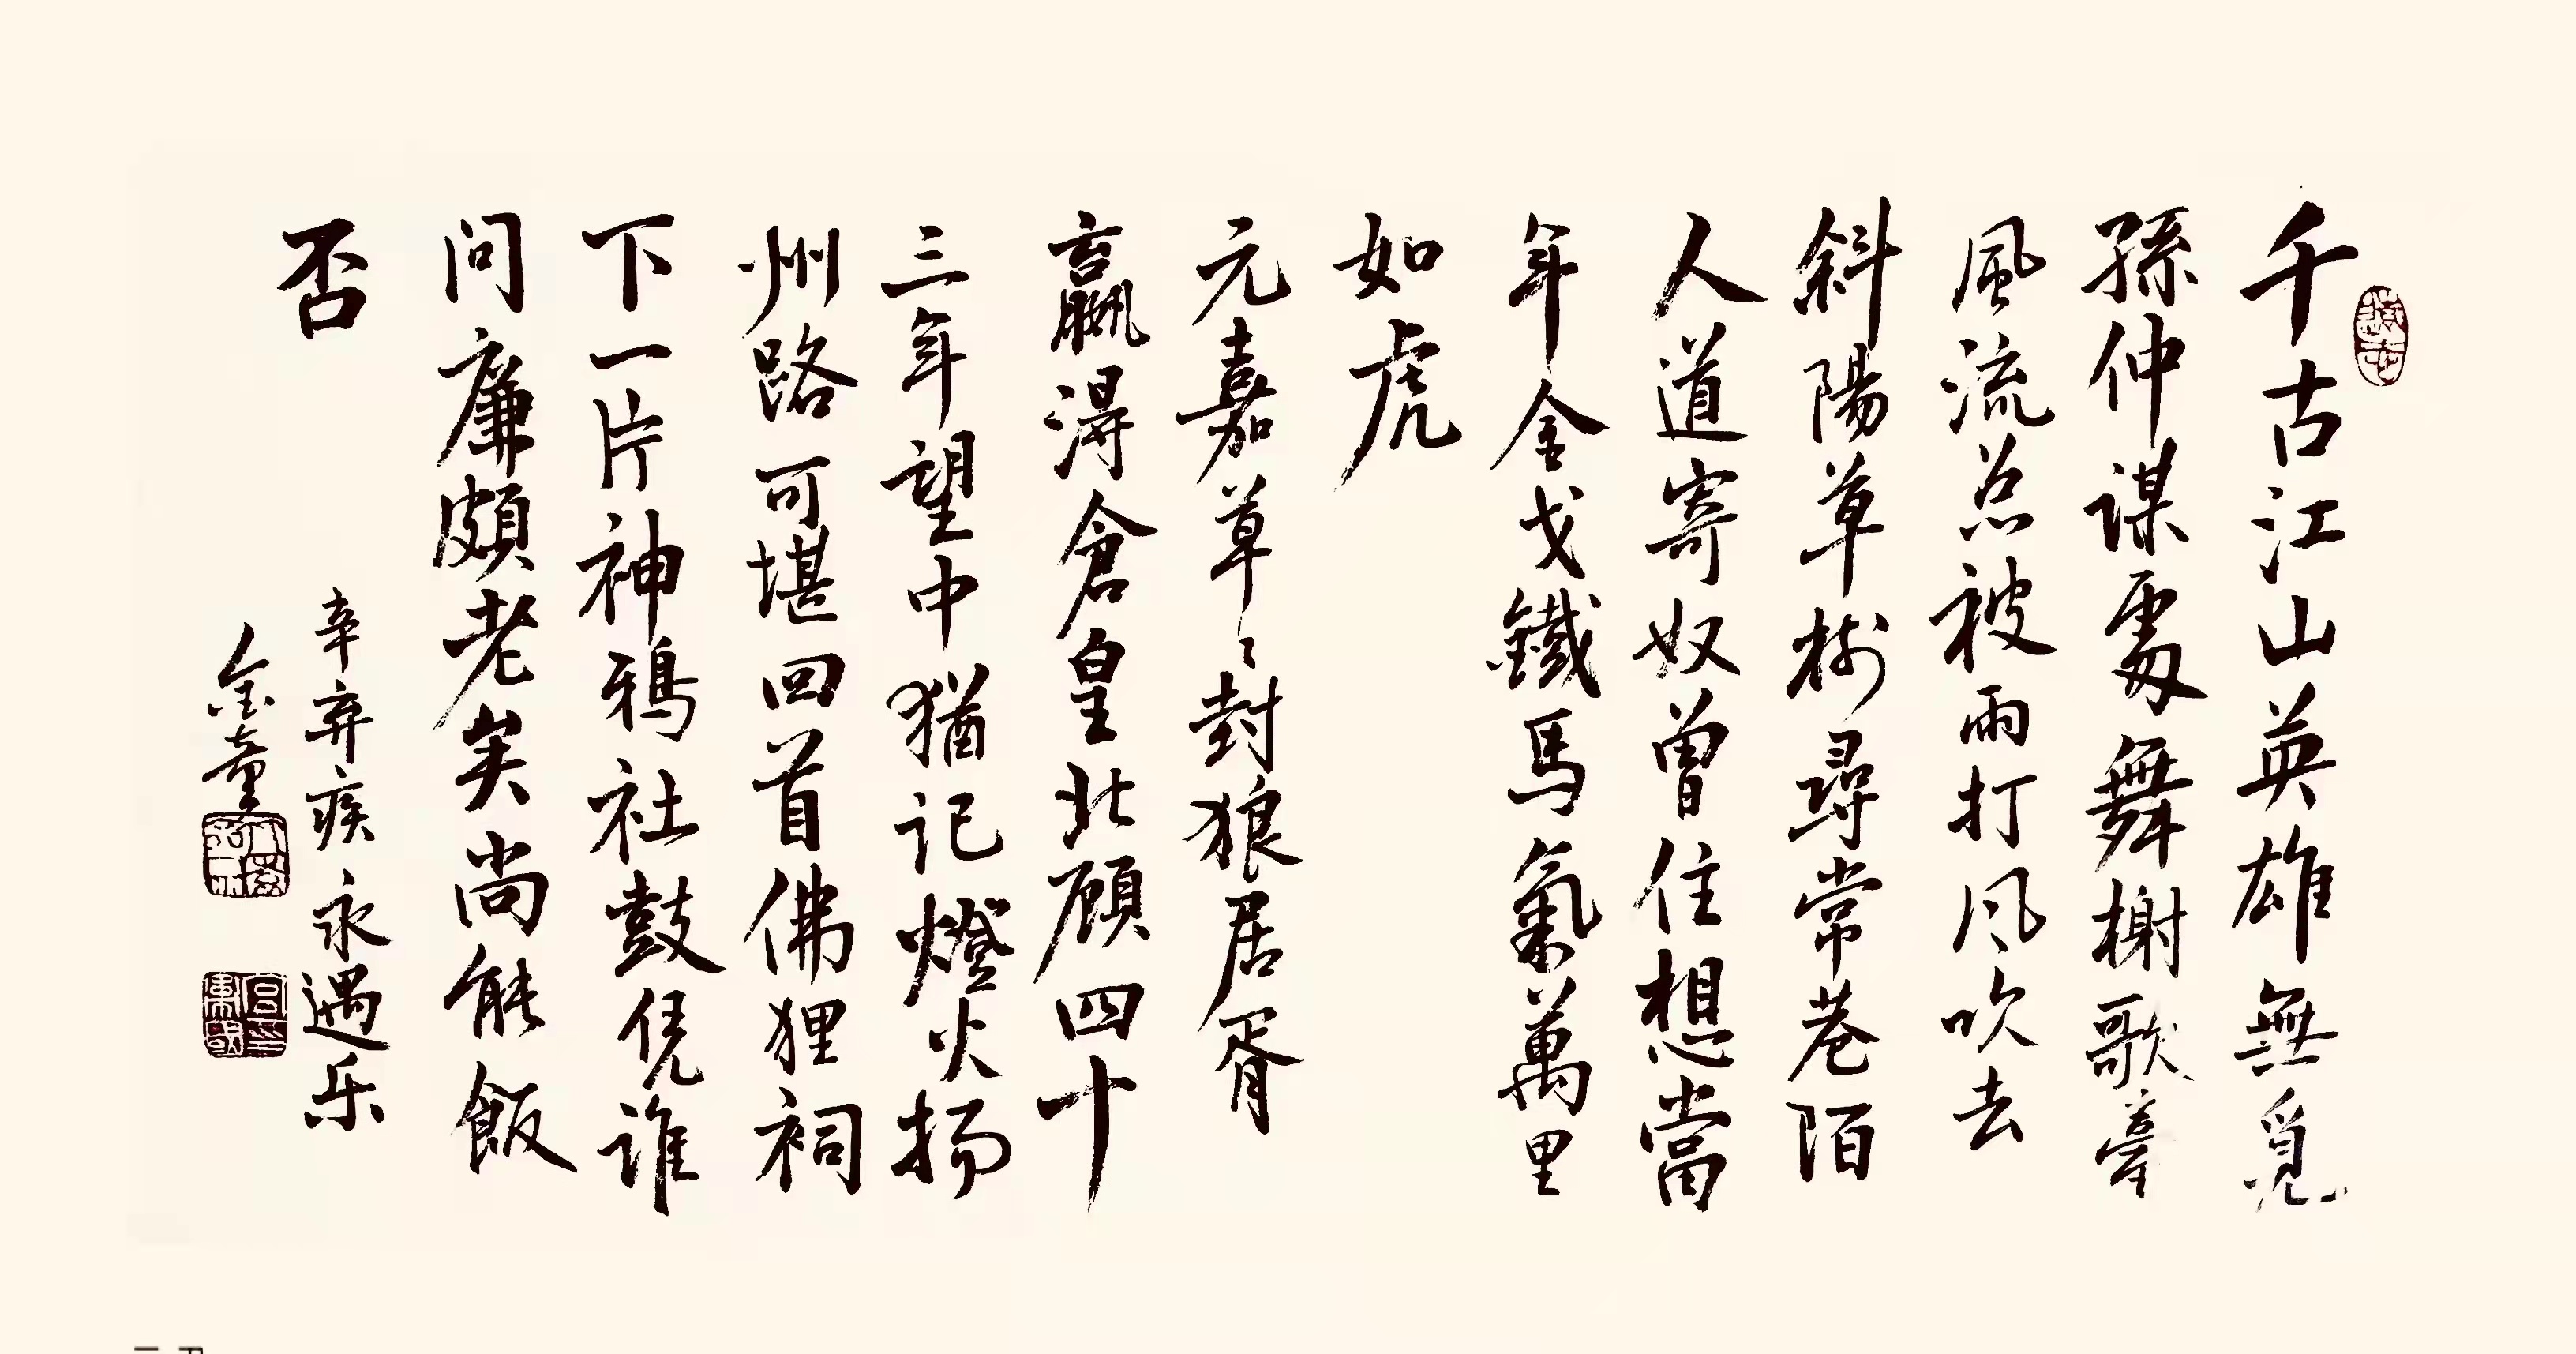 千古江山英雄無覓
孫仲謀處舞榭歌臺
風流总被雨打风吹去
斜陽草树尋常巷陌
人道寄奴曾住想當
年金戈鐵馬氣萬里
如虎
元嘉草〻封狼居胥
贏得倉皇北顧四十
三年望中猶记燈火扬
州路可堪回首佛狸祠
下一片神鴉社鼓凭谁
问廉頗老矣尚能飯
否
辛弃疾永遇乐